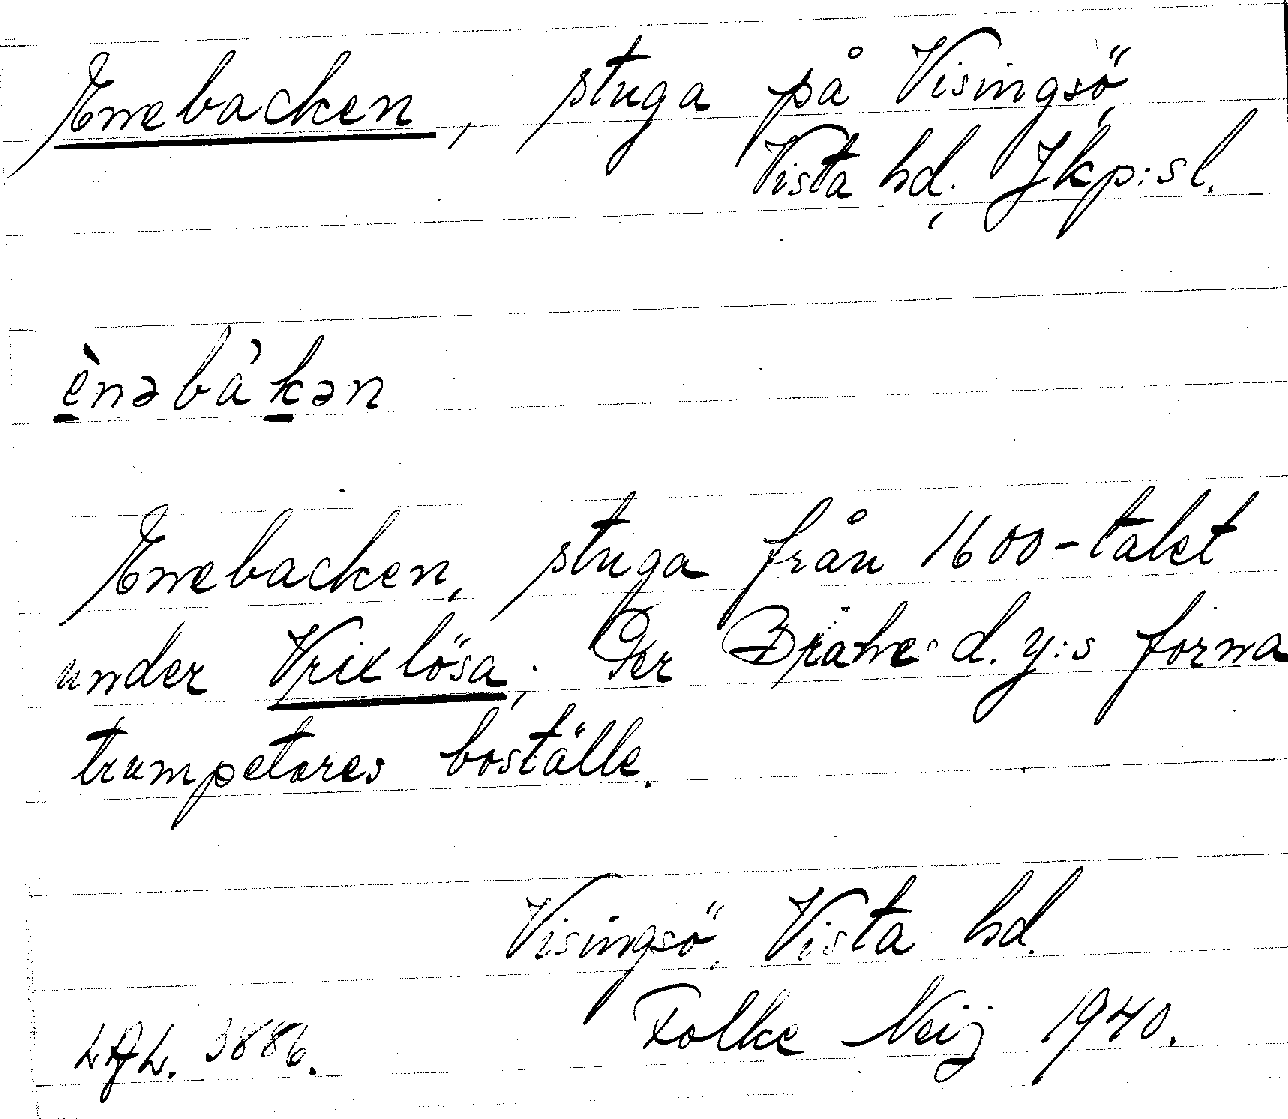 Enebacken, stuga på Visingsö,
Vista hd, Jkp:sl.
ènəbàkən
Enebacken, stuga från 1600-talet
under Vrixlösa; Per Brahe d.y:s forna
trumpetares boställe.
Visingsö, Vista hd.
Folke Neij 1940.
LAL. 3886.